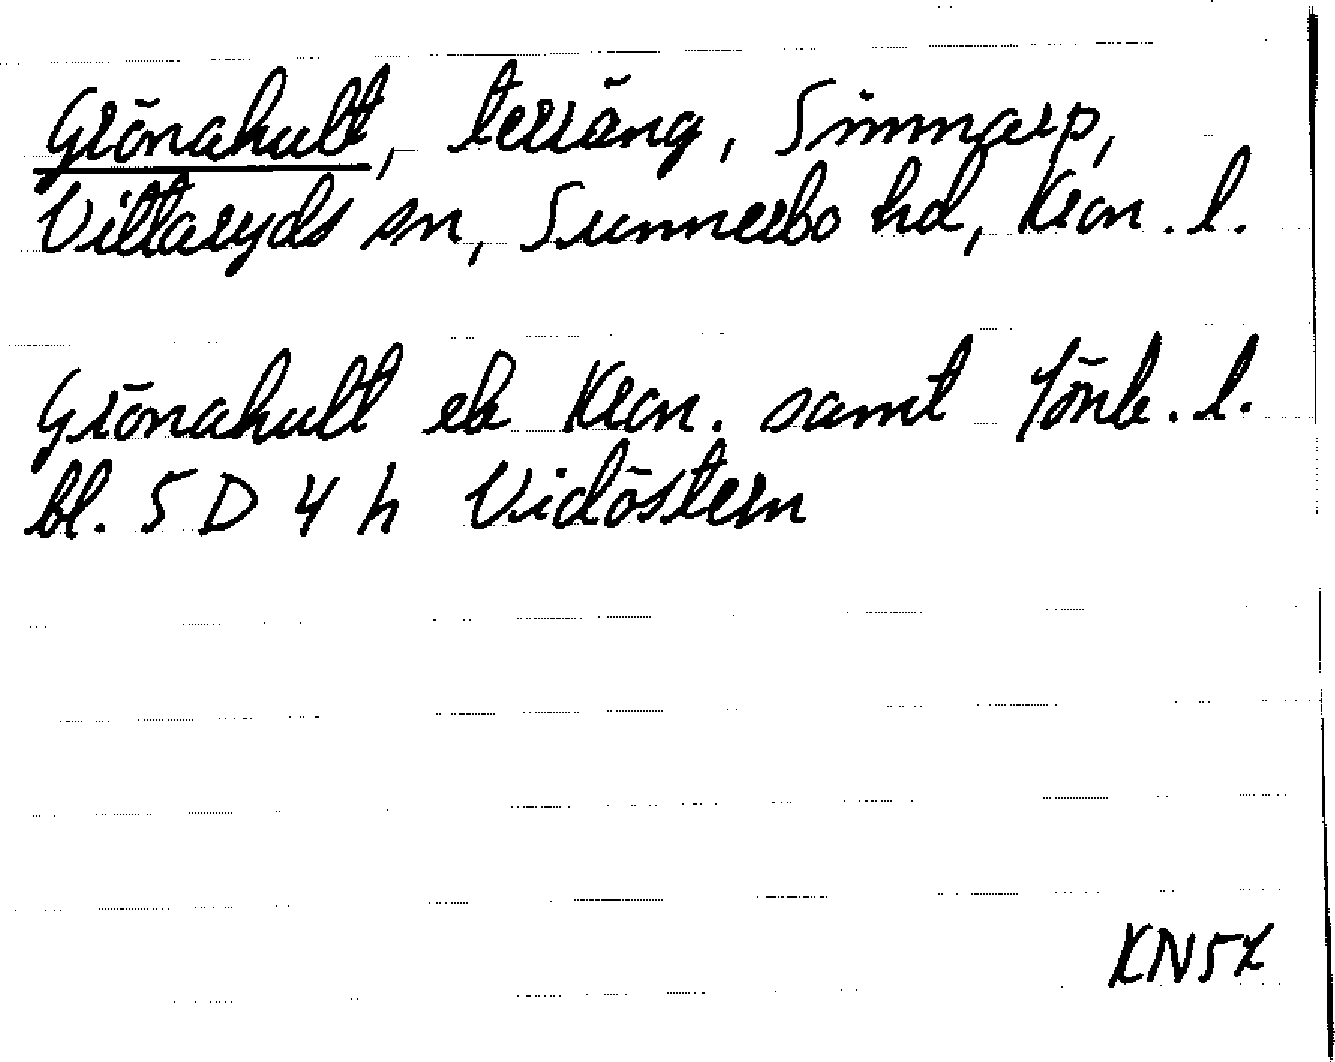 Grönahult, terräng, Simmarp,
Vittaryds sn, Sunnerbo hd, Kron. l.
Grönahult ek Kron. samt Jönk. l.
bl. 5 D 4 h Vidöstern